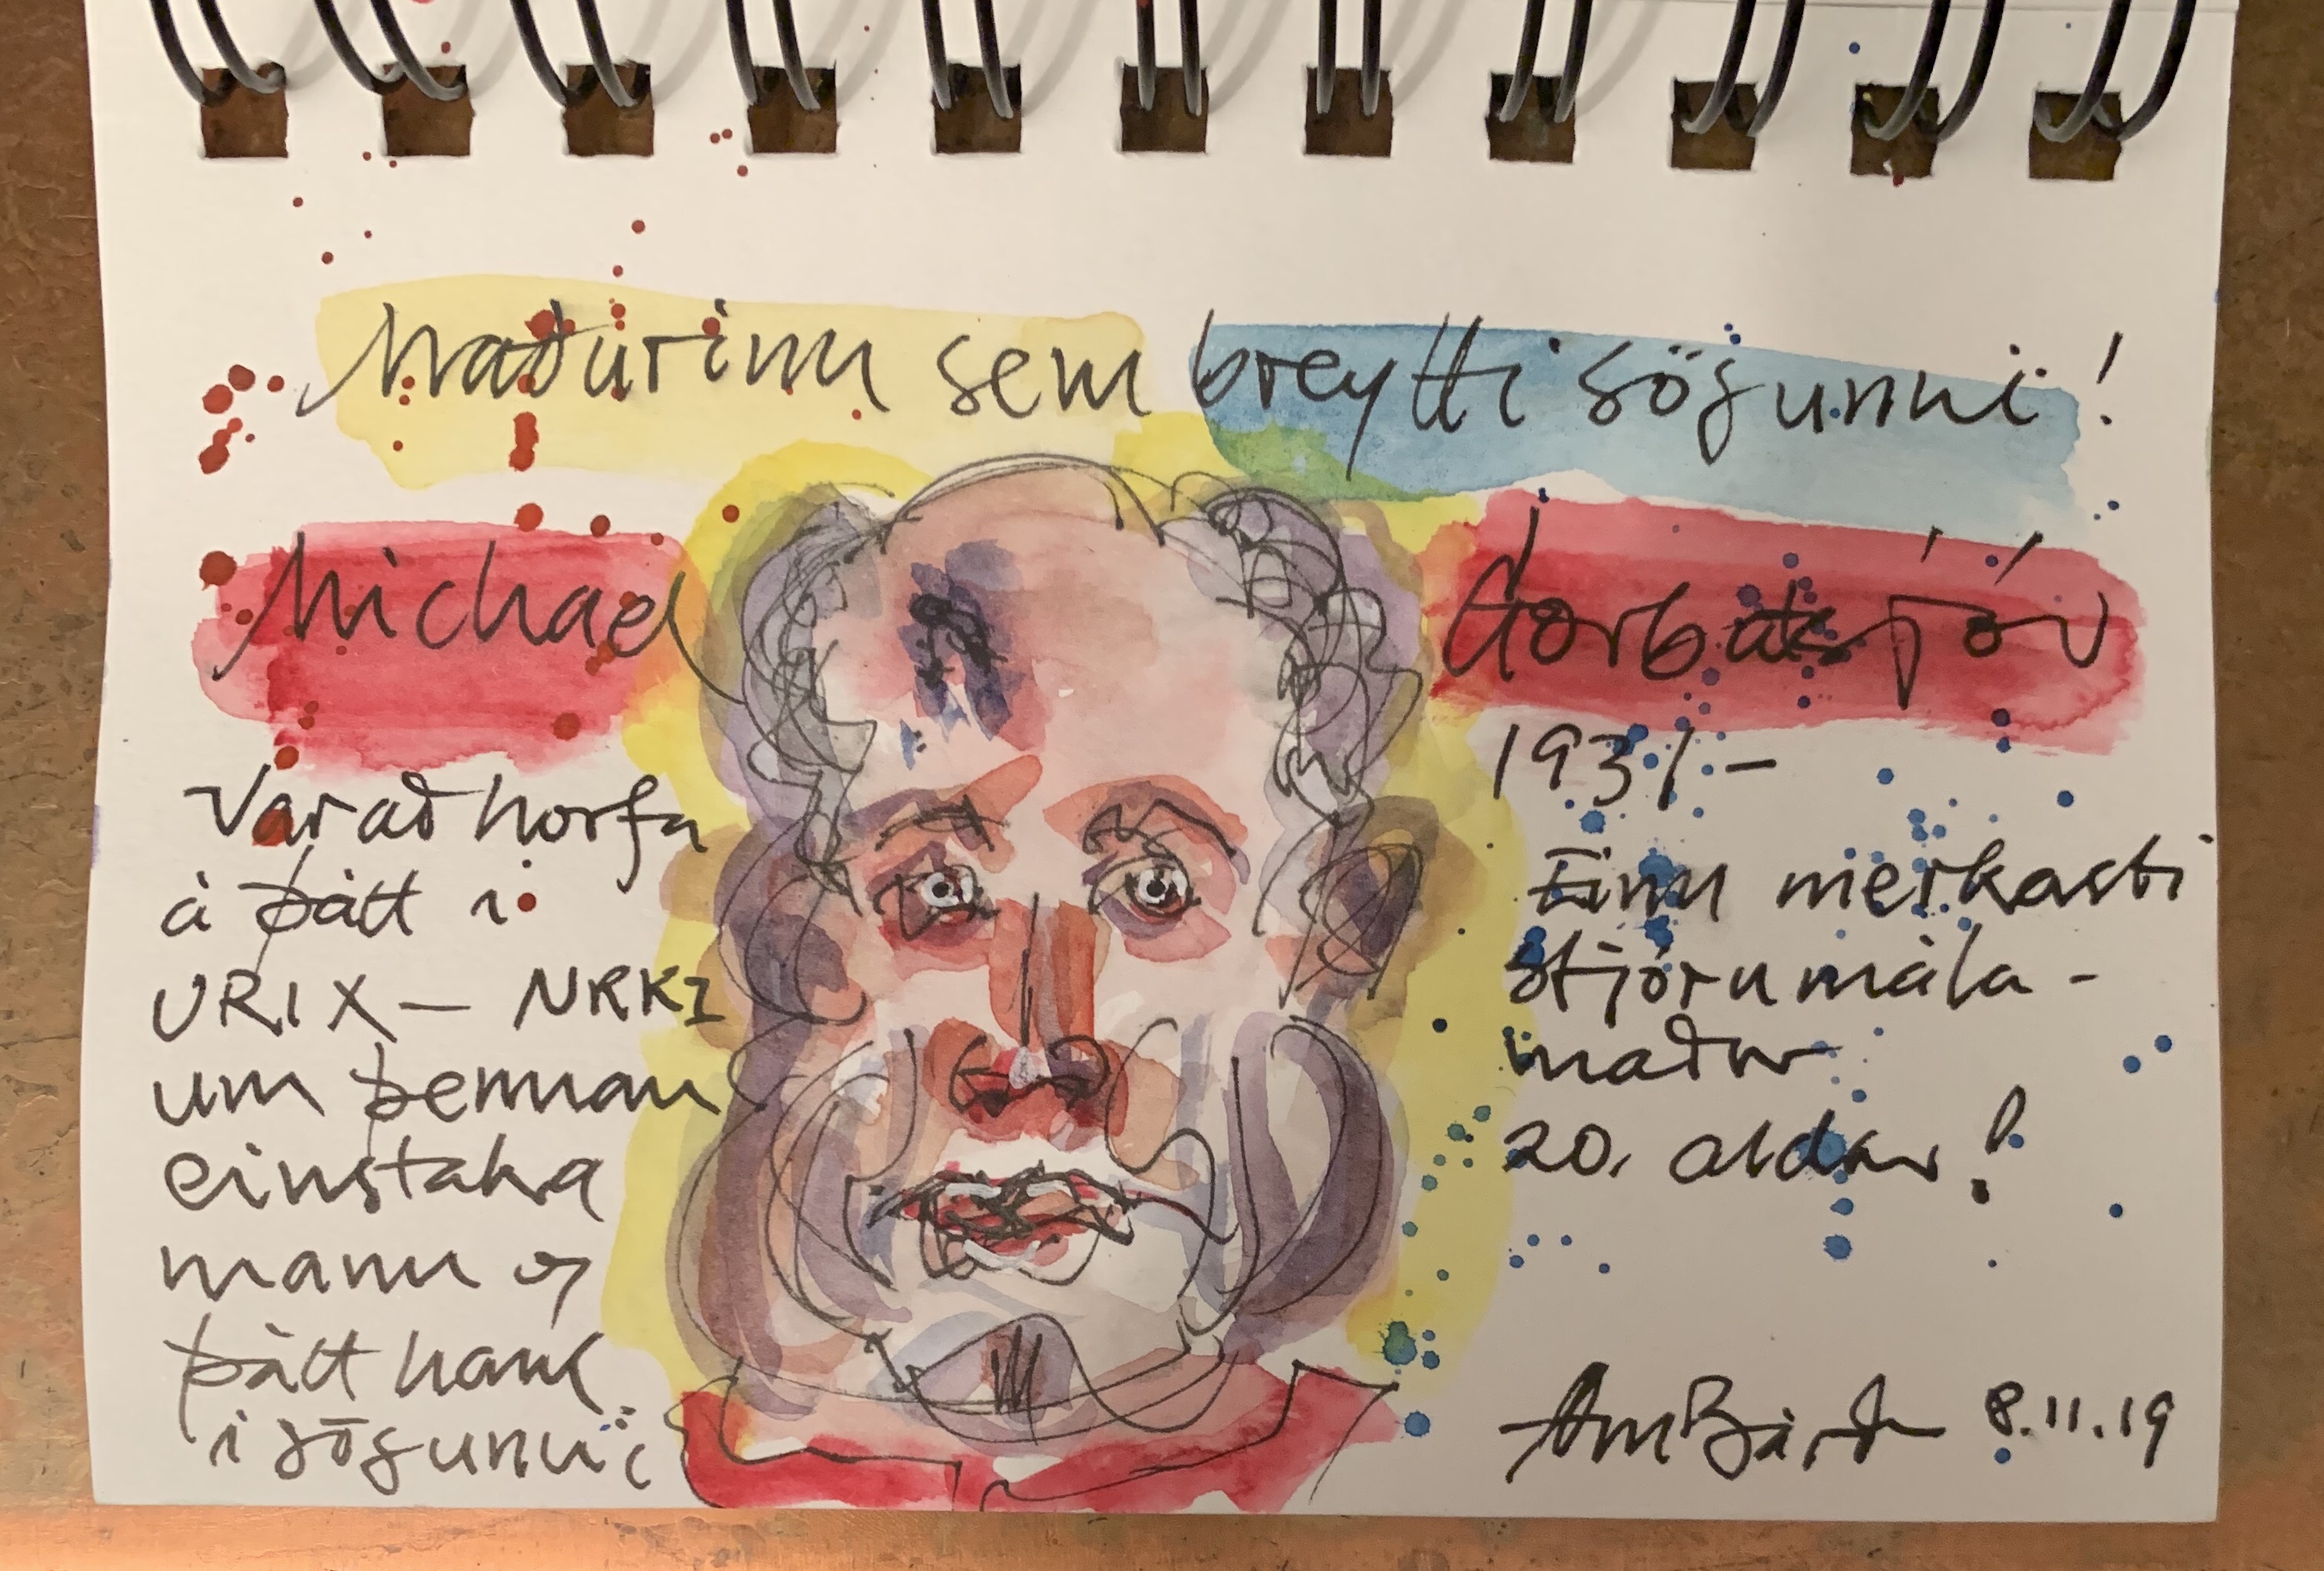 Maðurinn sem breytti sögunni!
Michael Gorbatsjóv
Var að horfa
á þátt í
URIX – NRK1
um þennan
einstaka
mann og
þátt hans
í sögunni
1931–
Einn merkasti
stjórnmála-
maður
20. aldar!
8.11.19